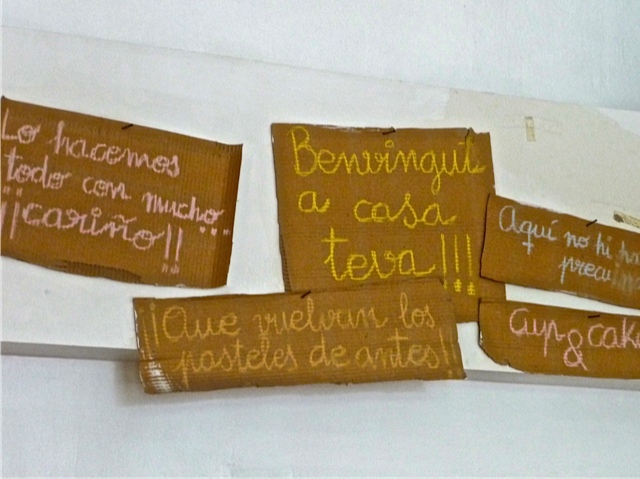 Lo hacemos
todo con mucho...
¡¡cariño!!
Benvingut
a casa
teva!!!
¡¡Que vuelvan los
pasteles de antes!!
Aquí no hi ha
Cup & cake